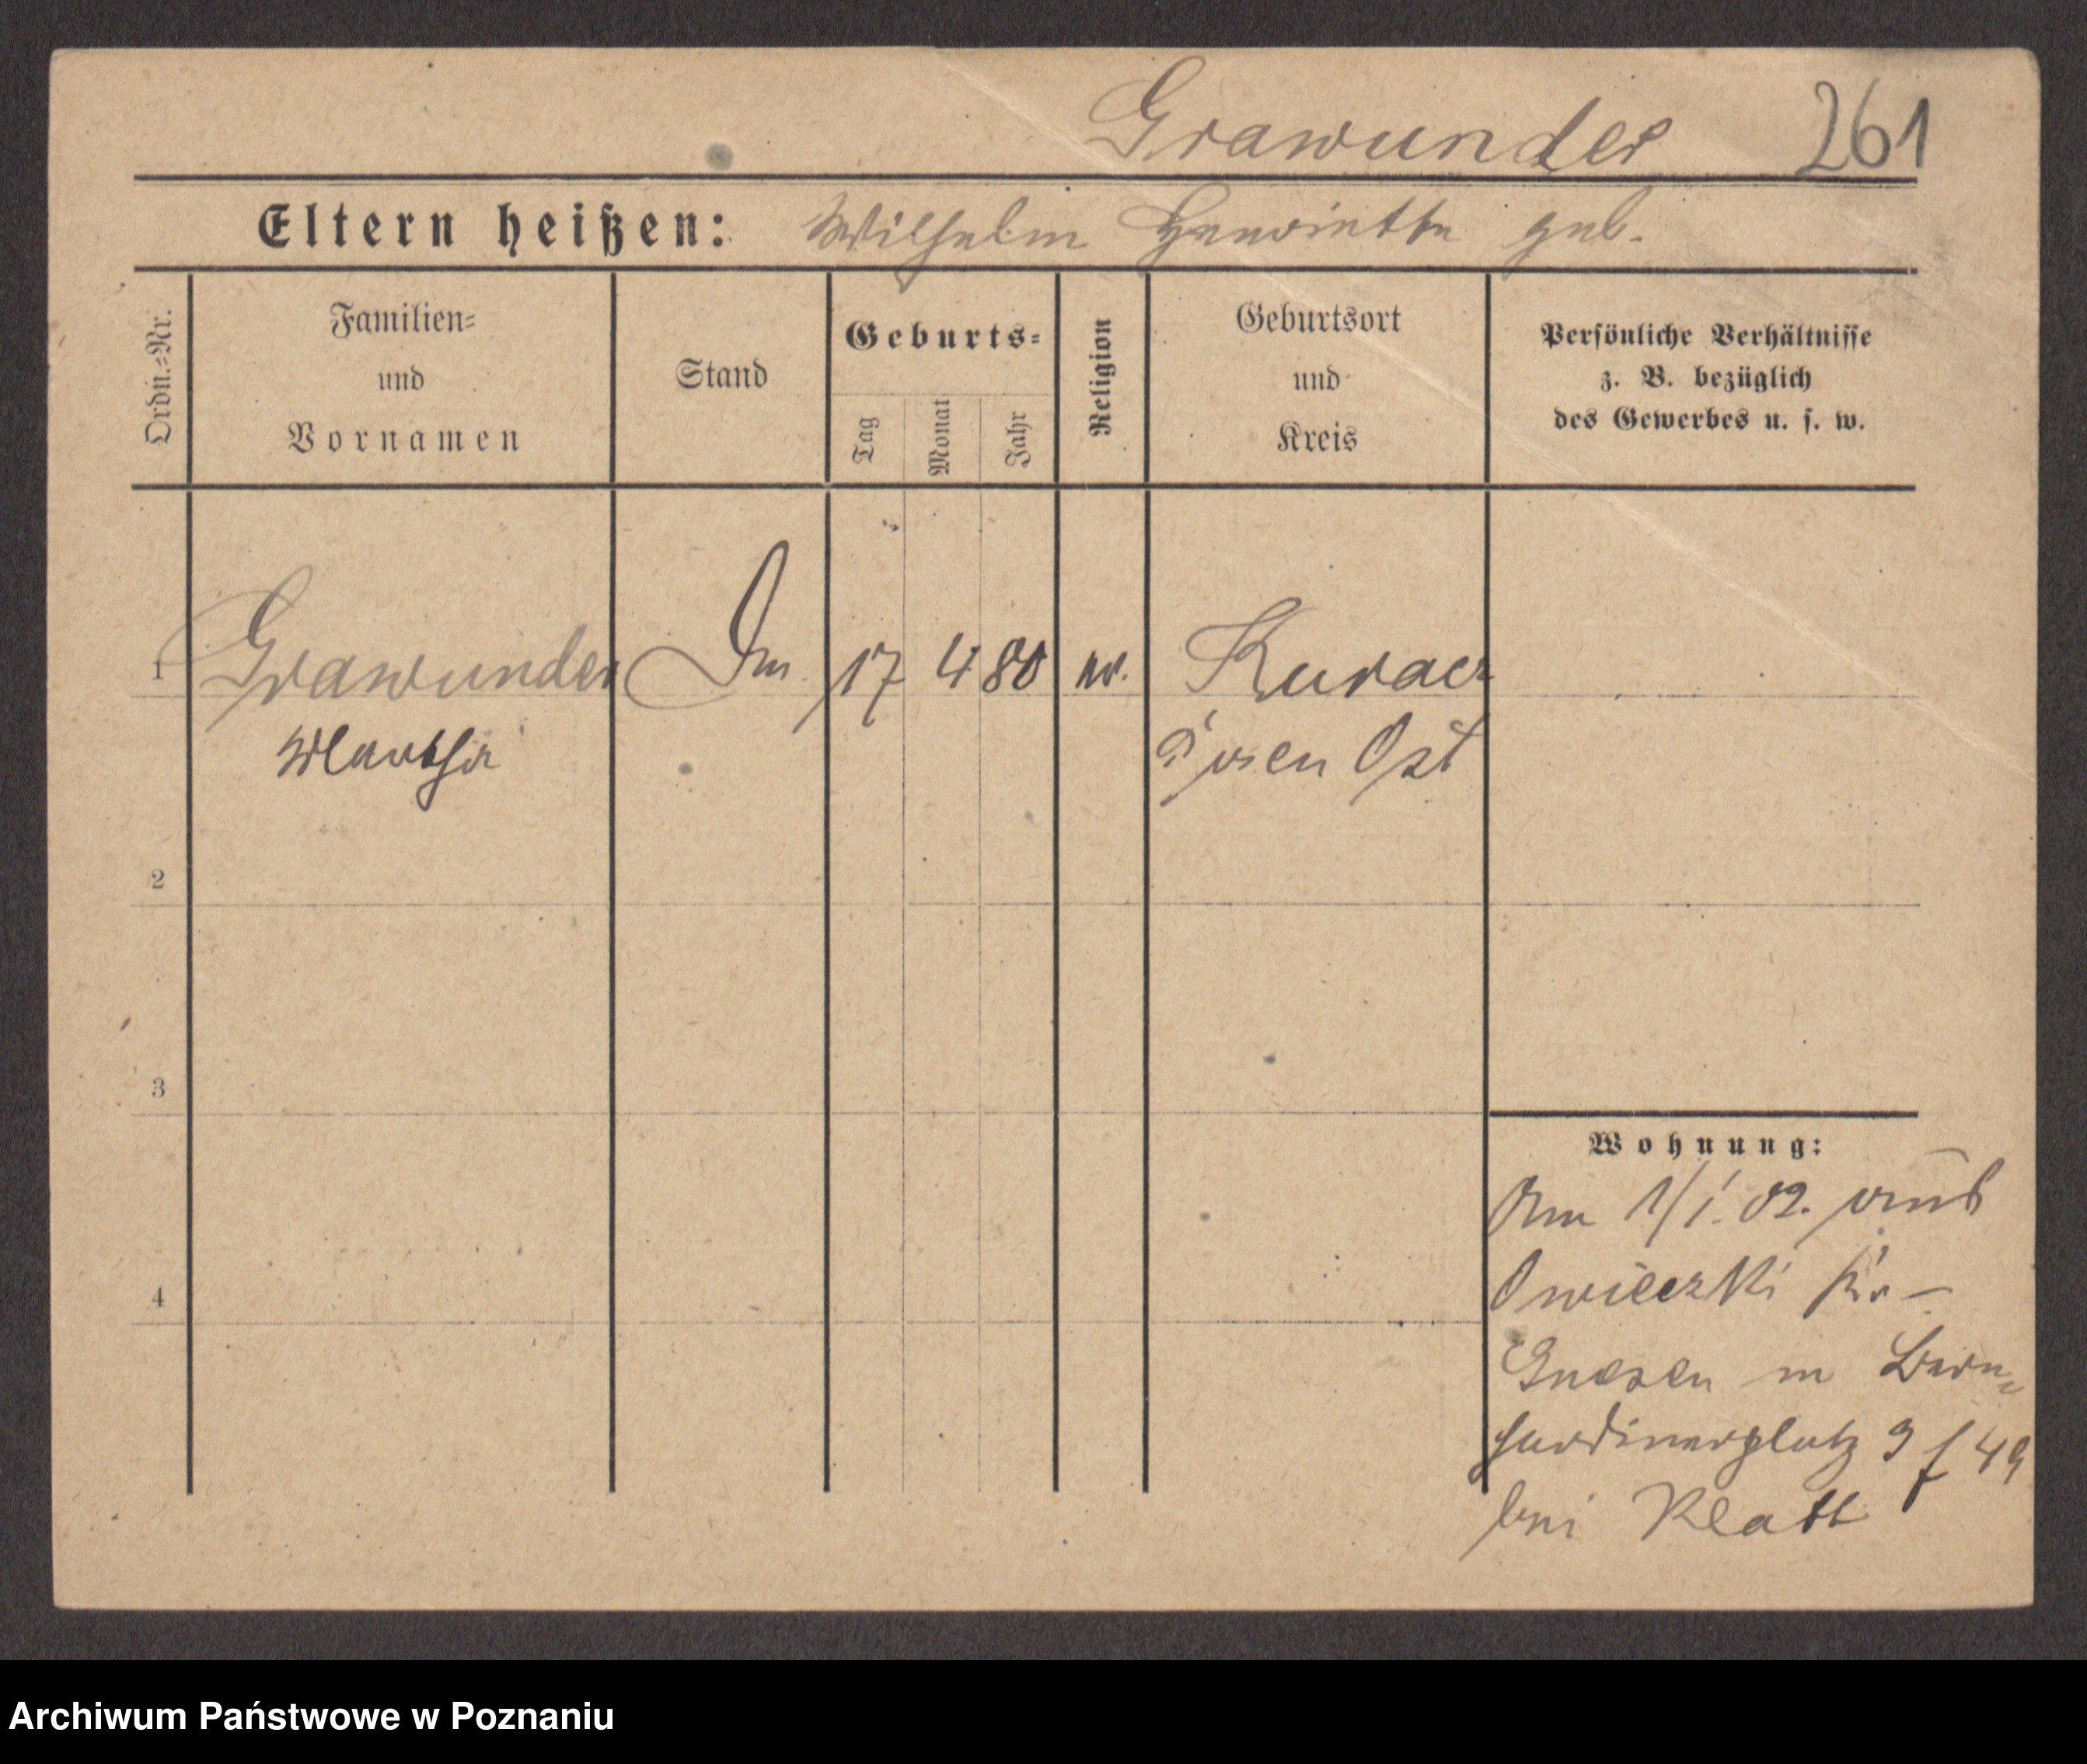 Grawunder 261
Eltern heißen: Wilhelm Henriette geb.
Ordn.=Nr.
Familien=
und
Vornamen
Stand
Geburts=
Tag
Monat
Jahr
Religion
Geburtsort
und
Kreis
Persönliche Verhältnisse
z. B. bezüglich
des Gewerbes u. s. w.
1 Grawunder 17 4 80 ev. Kuracz
Martha Posen Ost
2
3
4
Wohnung:
Am 1/1. 02. aus
Owieczki Kr
Gnesen in Bern=
hardinerplatz 3
bei Klatt
Archiwum Państwowe w Poznaniu